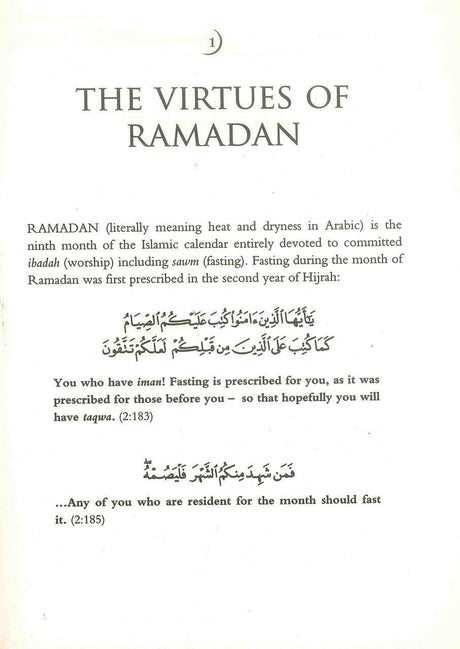 1
THE VIRTUES OF
RAMADAN
RAMADAN (literally meaning heat and dryness in Arabic) is the
ninth month of the Islamic calendar entirely devoted to committed
ibadah (worship) including sawm (fasting). Fasting during the month of
Ramadan was first prescribed in the second year of Hijrah:
يَٰٓأَيُّهَا ٱلَّذِينَ ءَامَنُوا۟ كُتِبَ عَلَيْكُمُ ٱلصِّيَامُ
كَمَا كُتِبَ عَلَى ٱلَّذِينَ مِن قَبْلِكُمْ لَعَلَّكُمْ تَتَّقُونَ
You who have iman! Fasting is prescribed for you, as it was
prescribed for those before you – so that hopefully you will
have taqwa. (2:183)
فَمَن شَهِدَ مِنكُمُ ٱلشَّهْرَ فَلْيَصُمْهُ ۖ
...Any of you who are resident for the month should fast
it. (2:185)